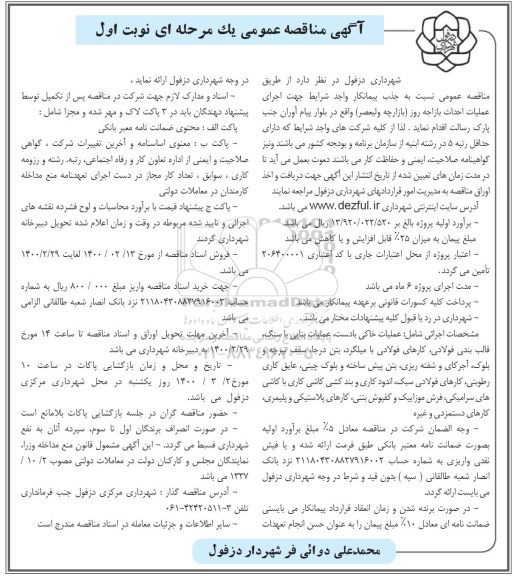 آگهی مناقصه عمومی یك مرحله ای نوبت اول
شهرداری دزفول در نظر دارد از طریق
مناقصه عمومی نسبت به جذب پیمانکار واجد شرایط جهت اجرای
عملیات احداث بازاجه روز (بازارچه ولیعصر) واقع در بلوار پیام آوران جنب
پارک رسالت اقدام نماید . لذا از کلیه شرکت های واجد شرایط که دارای
حداقل رتبه ۵ در رشته ابنیه از سازمان برنامه و بودجه کشور می باشند ونیز
گواهینامه صلاحیت، ایمنی و حفاظت کار می باشند دعوت بعمل می آید تا
در مدت زمان های تعیین شده از تاریخ انتشار این آگهی جهت دریافت و اخذ
اوراق مناقصه به مدیریت امور قراردادهای شهرداری دزفول مراجعه نمایند
آدرس سایت اینترنتی شهرداری www.dezful.ir می باشد.
– برآورد اولیه پروژه بالغ بر ۱۳/۹۲۰/۰۲۲/۵۲۰ ریال می باشد.
مبلغ پیمان به میزان ۲۵٪ قابل افزایش و یا کاهش می باشد
– اعتبار پروژه از محل اعتبارات جاری با کد اعتباری ۲۰۶۴۰۰۰۰۱
تأمین می گردد .
– مدت اجرای پروژه ۶ ماه می باشد
– پرداخت کلیه کسورات قانونی برعهده پیمانکار می باشد
– شهرداری در رد یا قبول کلیه پیشنهادات مختار می باشد.
مشخصات اجرائی شامل: عملیات خاکی بادست، عملیات بنایی با سنگ،
قالب بندی فولادی، کارهای فولادی با میلگرد، بتن درجا، سقف تیرچه و
بلوک، آجرکاری و شفته ریزی، بتن پیش ساخته و بلوک چینی، عایق کاری
رطوبتی، کارهای فولادی سبک، اندود کاری و بند کشی کاشی کاری با کاشی
های سرامیکی، فرش موزاییک و کفپوش بتنی، کارهای پلاستیکی و پلیمری،
کارهای دستمزدی و غیره
– وجه الضمان شرکت در مناقصه معادل ۵٪ مبلغ برآورد اولیه
بصورت ضمانت نامه معتبر بانکی طبق فرمت ارائه شده و یا فیش
نقدی واریزی به شماره حساب ۲۱۱۸۰۴۳۰۸۸۲۷۹۱۶۰۰۲ نزد بانک
انصار شعبه طالقانی ( سپه ) بدون قید و شرط در وجه شهرداری دزفول
می بایست ارائه گردد.
– در صورت برنده شدن و زمان انعقاد قرارداد پیمانکار می بایستی
ضمانت نامه ای معادل ۱۰٪ مبلغ پیمان را به عنوان حسن انجام تعهدات
در وجه شهرداری دزفول ارائه نماید ،
– اسناد و مدارک لازم جهت شرکت در مناقصه پس از تکمیل توسط
پیشنهاد دهندگان باید در ۳ پاکت لاک و مهر شده و مجزا شامل :
پاکت الف : محتوی ضمانت نامه معبر بانکی
– پاکت ب : معنوی اساسنامه و آخرین تغییرات شرکت ، گواهی
صلاحیت و ایمنی از اداره تعاون کار و رفاه اجتماعی، رتبه، رشته و رزومه
کاری ، سوابق ، تعداد کار مجاز در دست اجرای تعهدنامه منع مداخله
کارمندان در معاملات دولتی
– پاکت ج پیشنهاد قیمت با برآورد محاسبات و لوح فشرده نقشه های
اجرائی و تایید شده مربوطه در وقت و زمان اعلام شده تحویل دبیرخانه
شهرداری گردند
– فروش اسناد مناقصه از مورخ ۱۳/ ۰۲/ ۱۴۰۰ لغایت ۱۴۰۰/۲/۲۹
می باشد.
– جهت خرید اسناد مناقصه واریز مبلغ ۰۰۰ / ۸۰۰ ریال به شماره
حساب ۲۱۱۸۰۴۳۰۸۸۲۷۹۱۶۰۰۲ نزد بانک انصار شعبه طالقانی الزامی
می باشد
– آخرین مهلت تحویل اوراق و اسناد مناقصه تا ساعت ۱۴ مورخ
۱۴۰۰/۲/۲۹ به دبیرخانه شهرداری می باشد
– تاریخ و محل و زمان بازگشایی پاکات در ساعت ۱۰
مورخ۲/ ۳ / ۱۴۰۰ روز یکشنبه در محل شهرداری مرکزی
دزفول می باشد.
– حضور مناقصه گران در جلسه بازگشایی پاکات بلامانع است
– در صورت انصراف برندگان اول تا سوم، سپرده آنان به نفع
شهرداری ضبط می گردد. – این آگهی مشمول قانون منع مداخله وزرا،
نمایندگان مجلس و کارکنان دولت در معاملات دولتی مصوب ۲/ ۱۰ /
۱۳۳۷ می باشد
– آدرس مناقصه گذار : شهرداری مرکزی دزفول جنب فرمانداری
تلفن ۳–۰۶۱۴۲۴۲۰۵۱۱
– سایر اطلاعات و جزئیات معامله در اسناد مناقصه مندرج است
محمدعلی دوائی فر شهردار دزفول